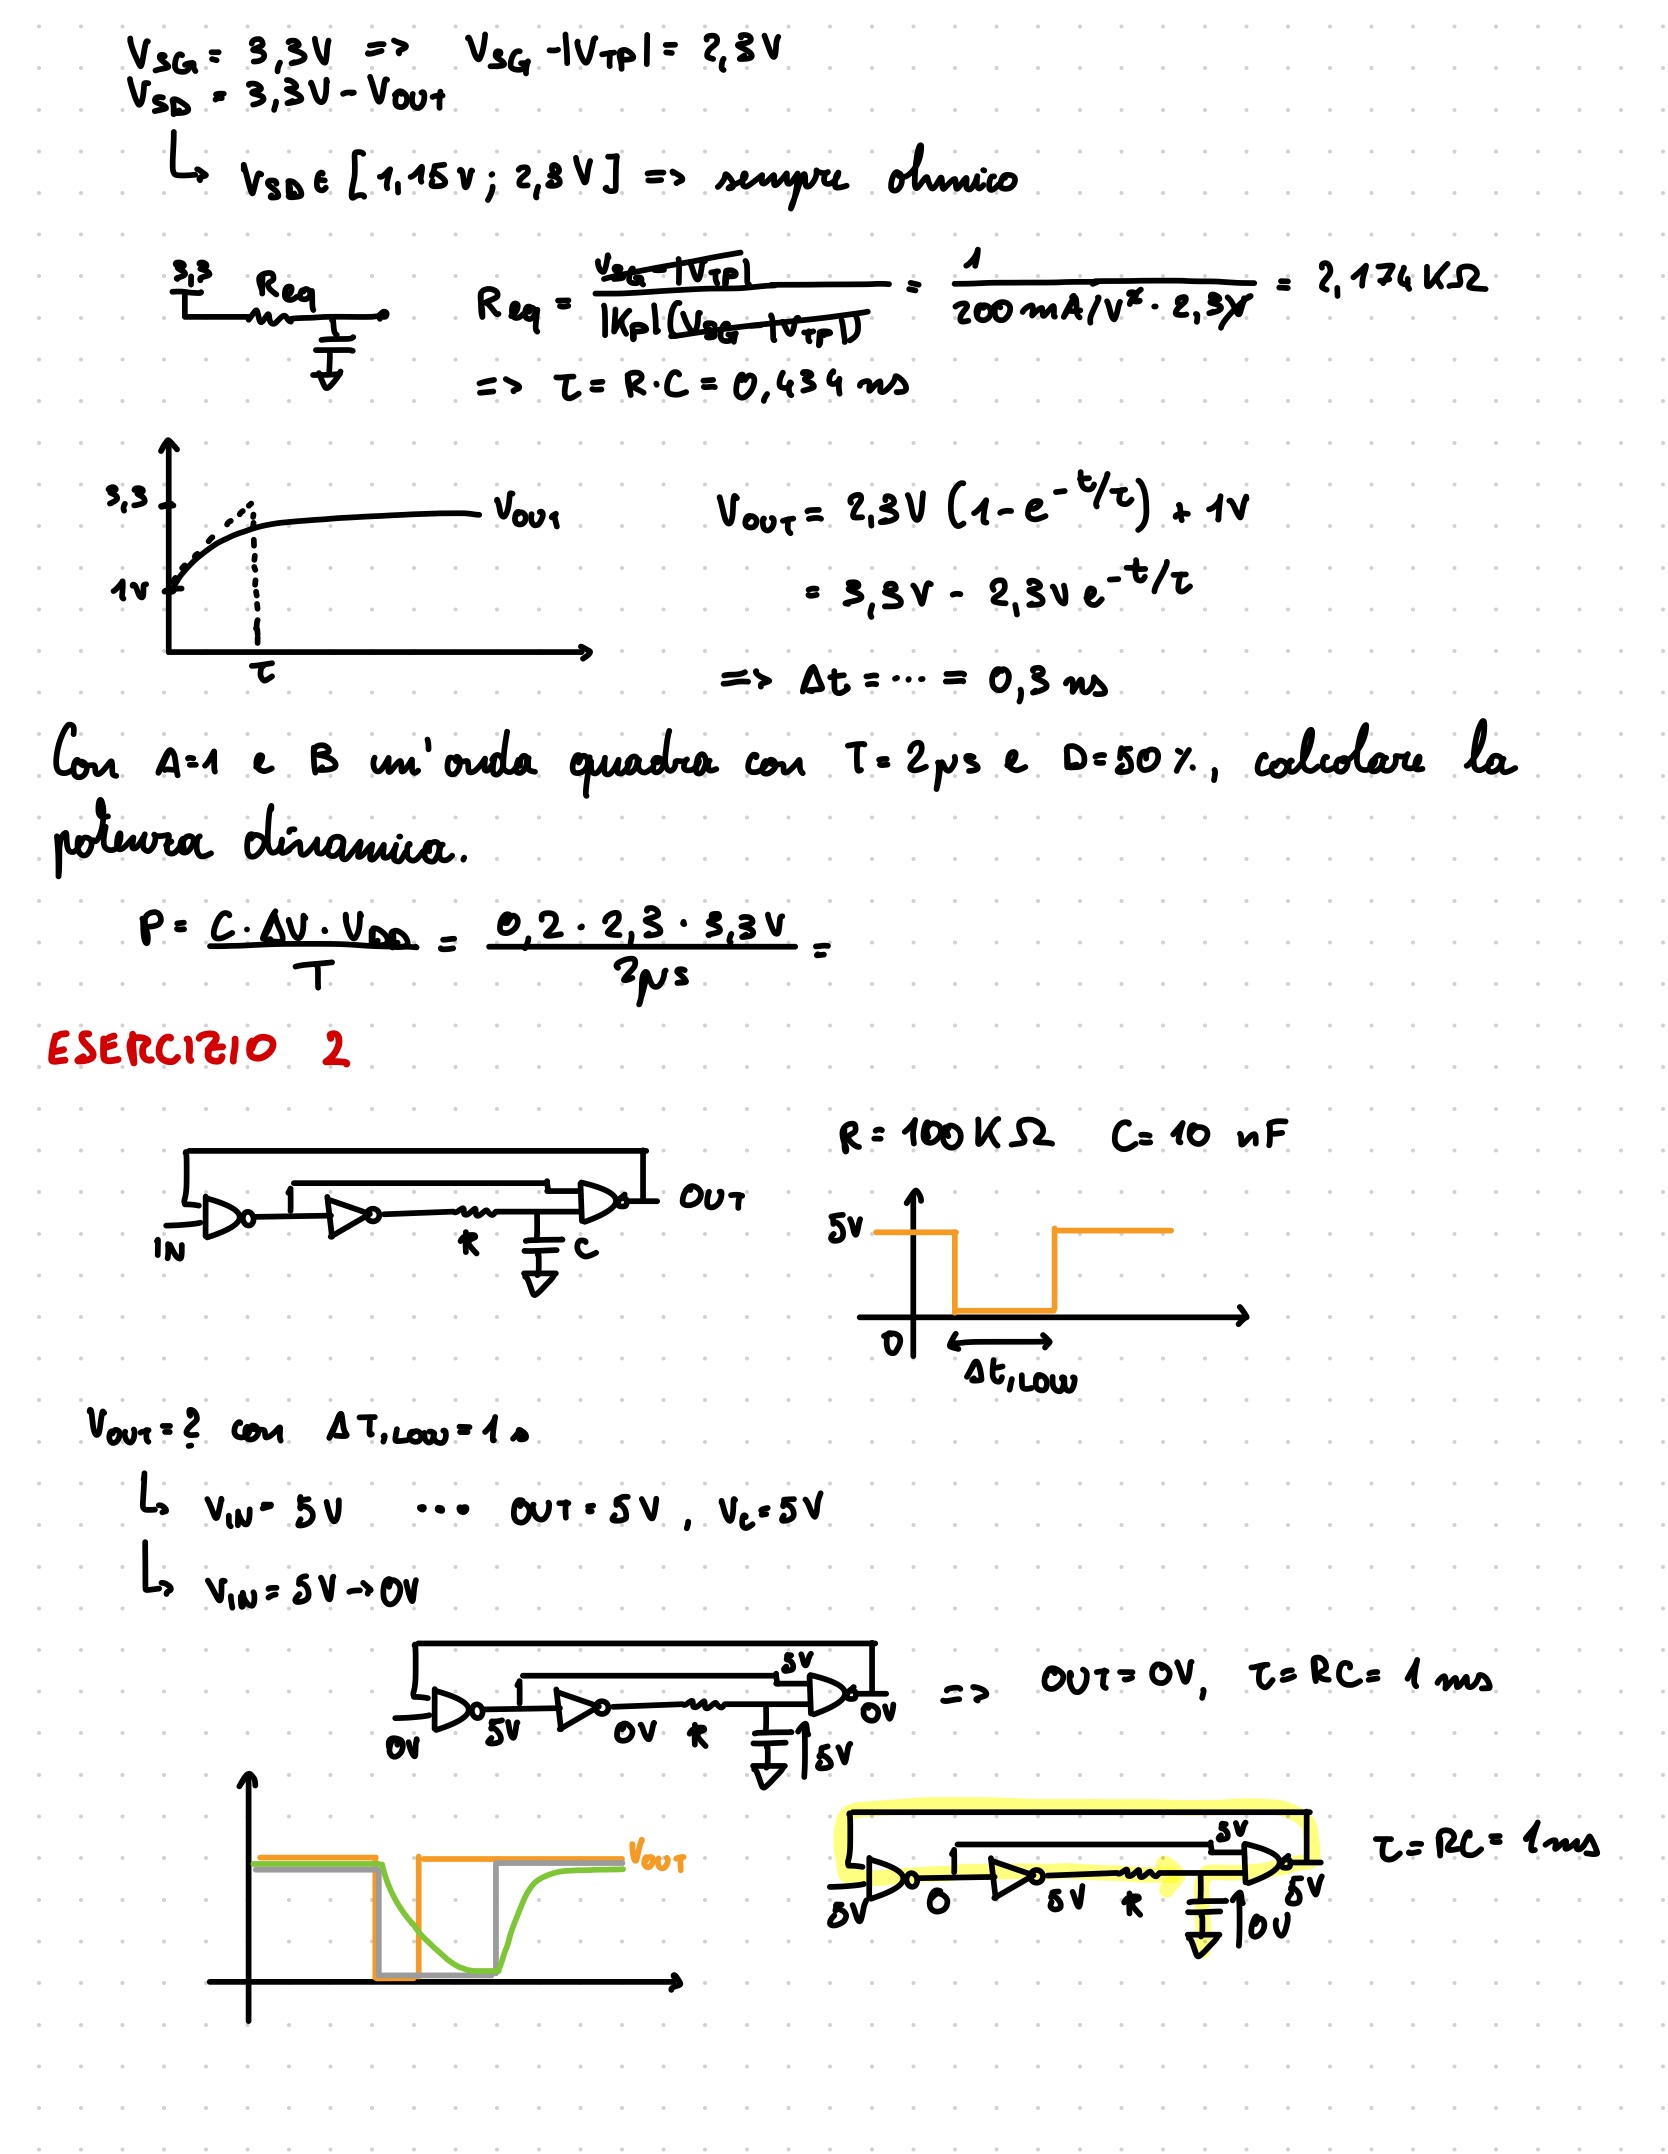 V_SG = 3,3V => V_SG - |V_TP| = 2,3V
V_SD = 3,3V - V_OUT
↳ V_SD ∈ [1,15V; 2,3V] => sempre ohmico
3,3 R_eq
R_eq = (V_SG - |V_TP|) / (|K_P| (V_SG - |V_TP|)) = 1 / (200 mA/V² · 2,3V) = 2,174 KΩ
=> τ = R·C = 0,434 ns
3,3
1V
τ
V_OUT
V_OUT = 2,3V (1 - e^(-t/τ)) + 1V
= 3,3V - 2,3V e^(-t/τ)
=> Δt = ... = 0,3 ns
Con A=1 e B un'onda quadra con T = 2μs e D=50%, calcolare la
potenza dinamica.
P = (C · ΔV · V_DD) / T = (0,2 · 2,3 · 3,3V) / 2μs =
ESERCIZIO 2
IN R C OUT
R = 100 KΩ C = 10 nF
5V
0
Δt,LOW
V_OUT = ? con ΔT,LOW = 1 s
↳ V_IN = 5V ... OUT = 5V, V_C = 5V
↳ V_IN = 5V → 0V
0V 5V 0V R 5V 5V 0V
=> OUT = 0V, τ = RC = 1 ms
V_OUT
5V 0 5V R 5V 0V 5V
τ = RC = 1 ms